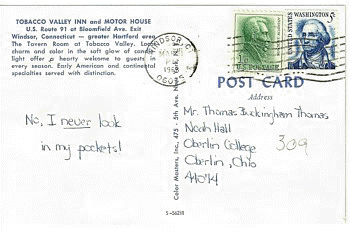 TOBACCO VALLEY INN and MOTOR HOUSE
U.S. Route 91 at Bloomfield Ave. Exit
Windsor, Connecticut — greater Hartford area
The Tavern Room at Tobacco Valley. Local
charm and color in the soft glow of candle
light offer a hearty welcome to guests in
every season. Early American and continental
specialties served with distinction.
No, I never look
in my pockets!
WINDSOR, CT
1¢
U.S. POSTAGE
WASHINGTON
5¢
UNITED STATES
POST CARD
Address
Mr. Thomas Buckingham Thomas
Noah Hall
309
Oberlin College
Oberlin, Ohio
44074
Color Masters, Inc., 475 - 5th Ave., New York, N.Y.
S-56218